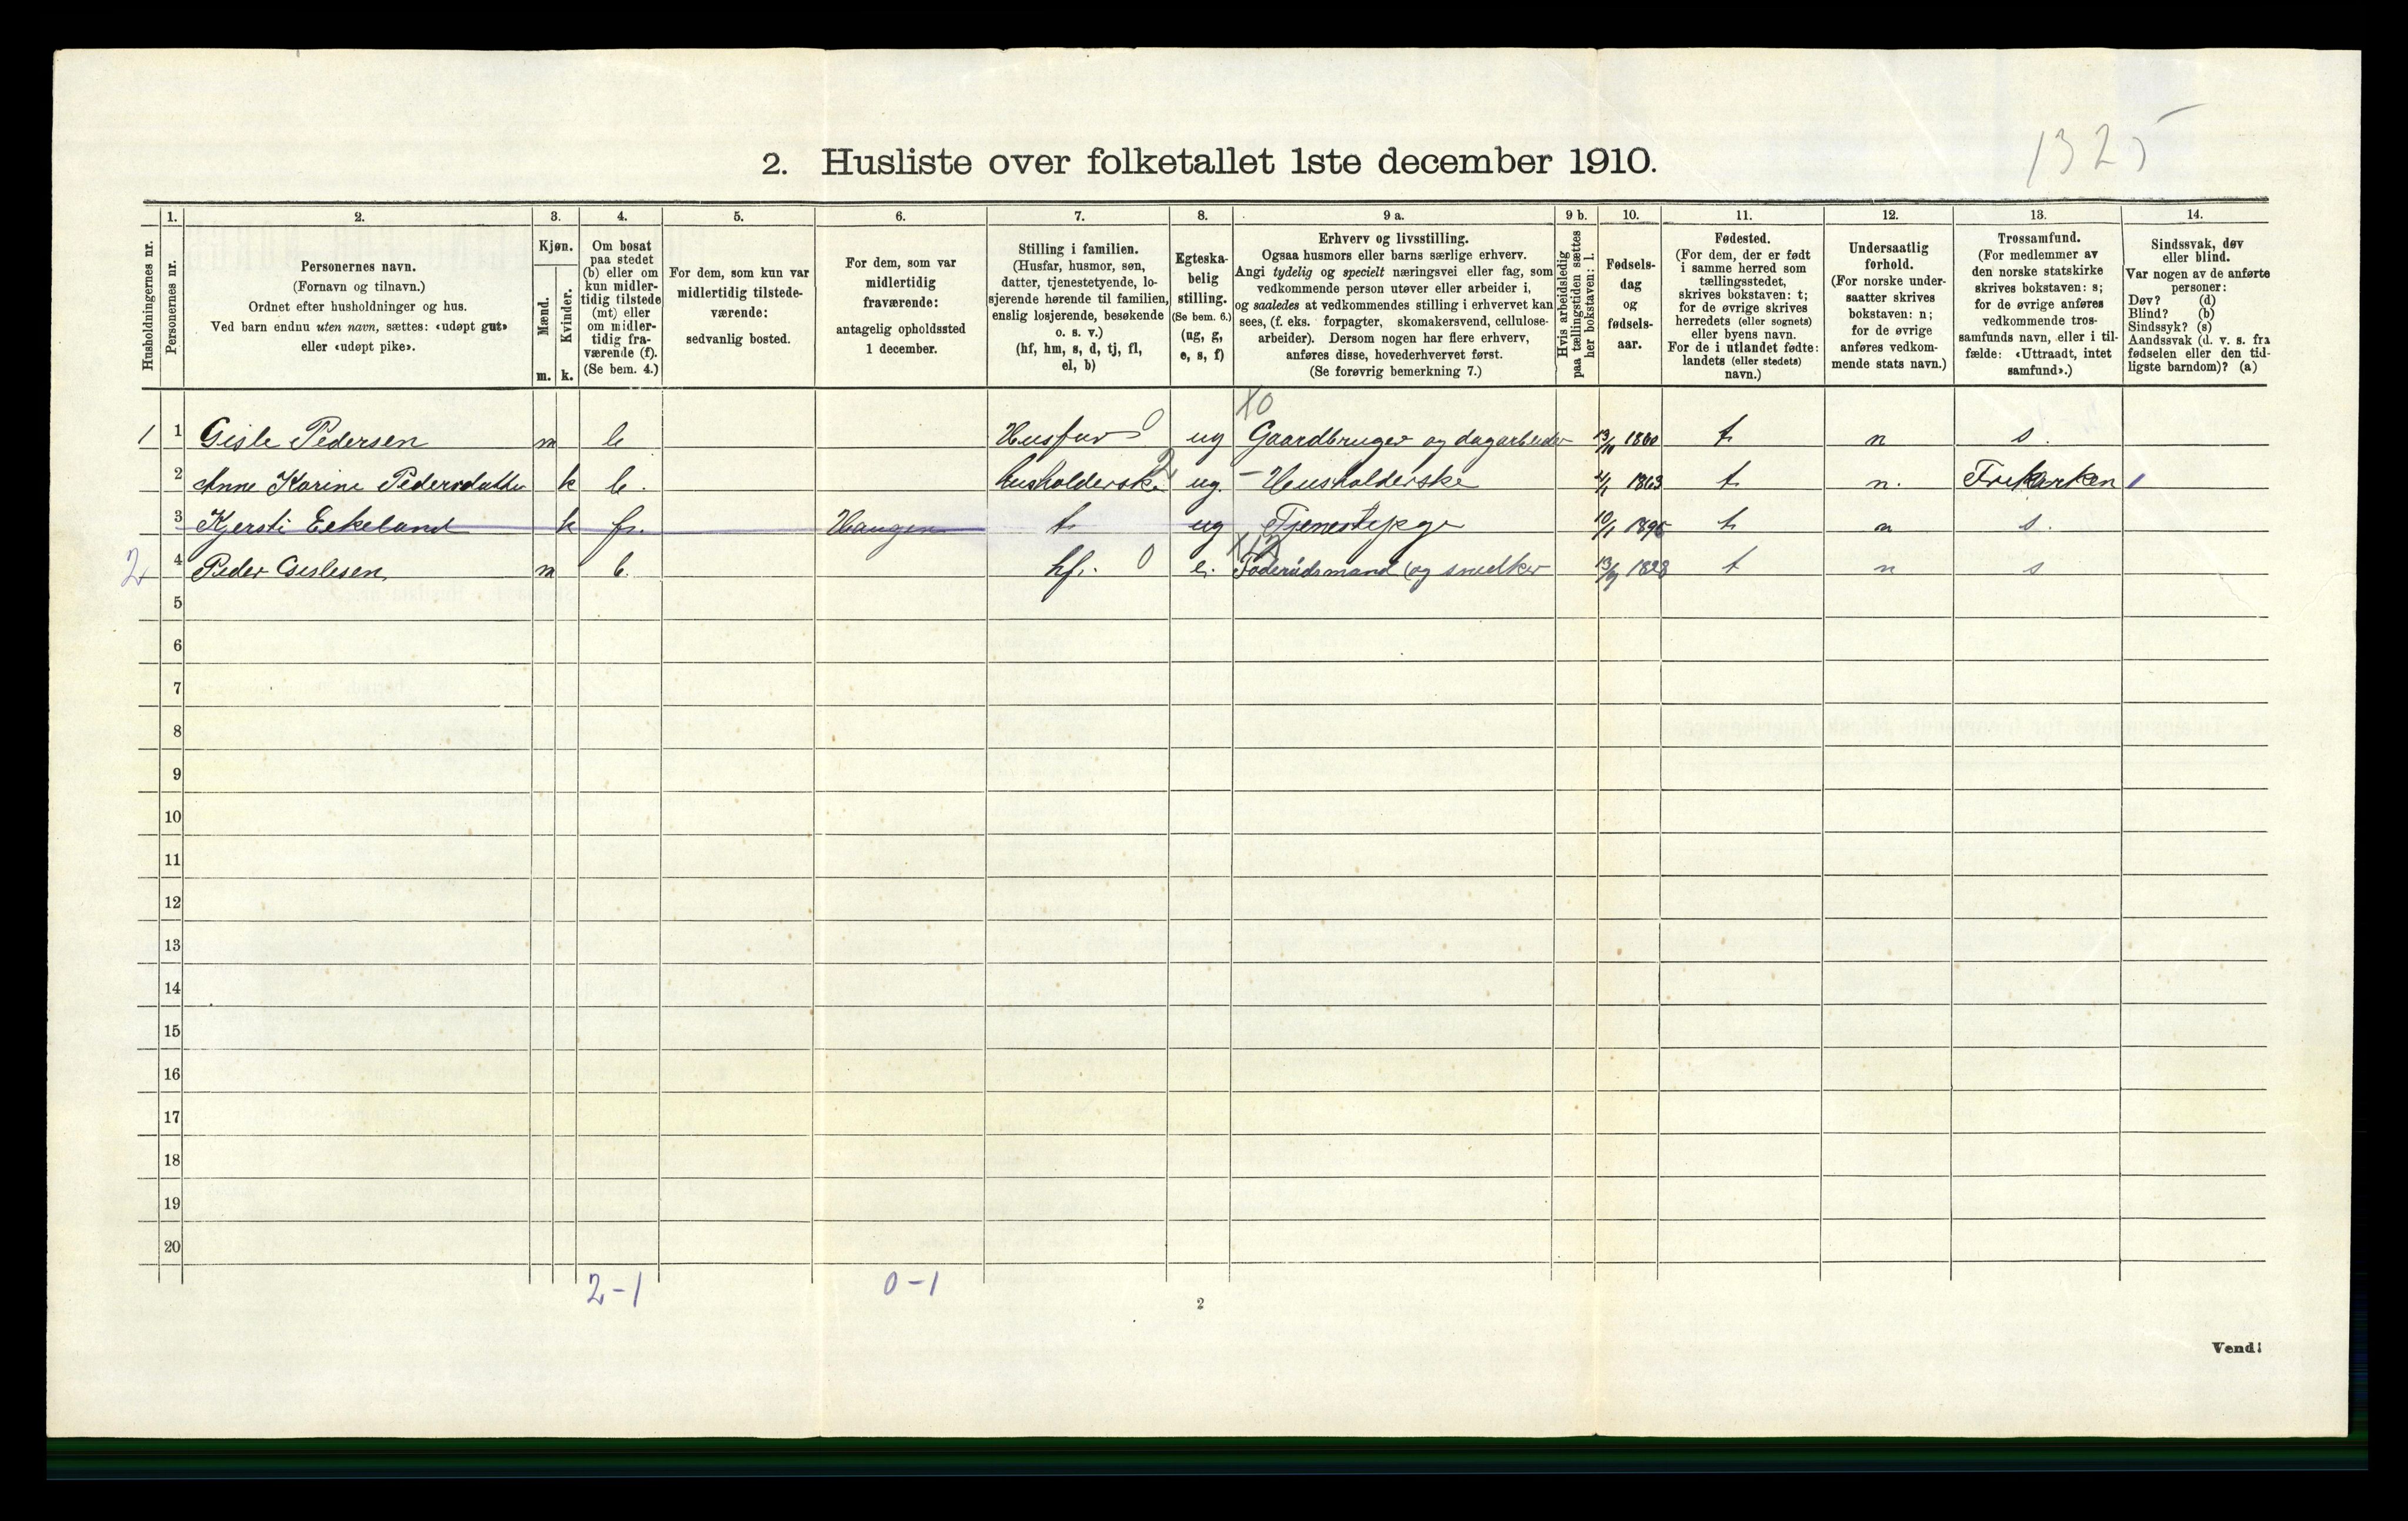 1325
2. Husliste over folketallet 1ste december 1910.
Husholdningernes nr.
1.
Personernes nr.
2.
Personernes navn.
(Fornavn og tilnavn.)
Ordnet efter husholdninger og hus.
Ved barn endnu uten navn, sættes: «udøpt gut»
eller «udøpt pike».
3.
Kjøn.
Mænd.
Kvinder.
m. k.
4.
Om bosat
paa stedet
(b) eller om
kun midler-
tidig tilstede
(mt) eller
om midler-
tidig fra-
værende (f).
(Se bem. 4.)
5.
For dem, som kun var
midlertidig tilstede-
værende:
sedvanlig bosted.
6.
For dem, som var
midlertidig
fraværende:
antagelig opholdssted
1 december.
7.
Stilling i familien.
(Husfar, husmor, søn,
datter, tjenestetyende, lo-
sjerende hørende til familien,
enslig losjerende, besøkende
o. s. v.)
(hf, hm, s, d, tj, fl,
el, b)
8.
Egteska-
belig
stilling.
(Se bem. 6.)
(ug, g,
e, s, f)
9 a.
Erhverv og livsstilling.
Ogsaa husmors eller barns særlige erhverv.
Angi tydelig og specielt næringsvei eller fag, som
vedkommende person utøver eller arbeider i,
og saaledes at vedkommendes stilling i erhvervet kan
sees, (f. eks. forpagter, skomakersvend, cellulose-
arbeider). Dersom nogen har flere erhverv,
anføres disse, hovederhvervet først.
(Se forøvrig bemerkning 7.)
9 b.
Hvis arbeidsledig
paa tællingstiden sættes
her bokstaven: l.
10.
Fødsels-
dag
og
fødsels-
aar.
11.
Fødested.
(For dem, der er født
i samme herred som
tællingsstedet,
skrives bokstaven: t;
for de øvrige skrives
herredets (eller sognets)
eller byens navn.
For de i utlandet fødte:
landets (eller stedets)
navn.)
12.
Undersaatlig
forhold.
(For norske under-
saatter skrives
bokstaven: n;
for de øvrige
anføres vedkom-
mende stats navn.)
13.
Trossamfund.
(For medlemmer av
den norske statskirke
skrives bokstaven: s;
for de øvrige anføres
vedkommende tros-
samfunds navn, eller i til-
fælde: «Uttraadt, intet
samfund».)
14.
Sindssvak, døv
eller blind.
Var nogen av de anførte
personer:
Døv? (d)
Blind? (b)
Sindssyk? (s)
Aandssvak (d. v. s. fra
fødselen eller den tid-
ligste barndom)? (a)
X0
1 1 Gisle Pedersen m b Husfar 0 ug Gaardbruger og dagarbeider 13/10 1860 t n s.
2 Anne Karine Pedersdatter k b. husholderske 2 ug. - Husholderske 1863 t n. Frikirken 1
3 Kjersti Eikeland k fr. Haugen t ug Tjenestepge 10/1 t n s.
X12
2 4 Peder Gislesen m b. hf. 0 e. Føderådsmand (og snedker 13/9 1828 t n s
5
6
7
8
9
10
11
12
13
14
15
16
17
18
19
20
2-1 0-1
2
Vend!